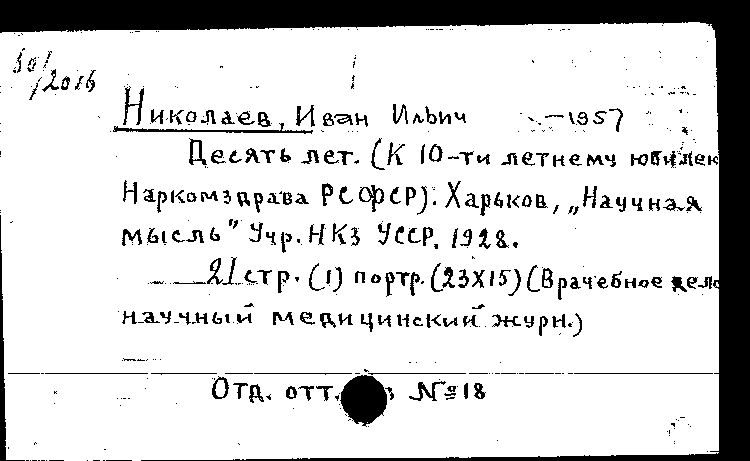 501/2016
Николаев, Иван Ильич —1957
Десять лет. (К 10-ти летнему юбилею
Наркомздрава РСФСР). Харьков, „Научная
мысль" Учр. НКЗ УССР, 1928.
21 стр. (1) портр. (23X15) (Врачебное дело
научный медицинский журн.)
Отд. отт. из №18